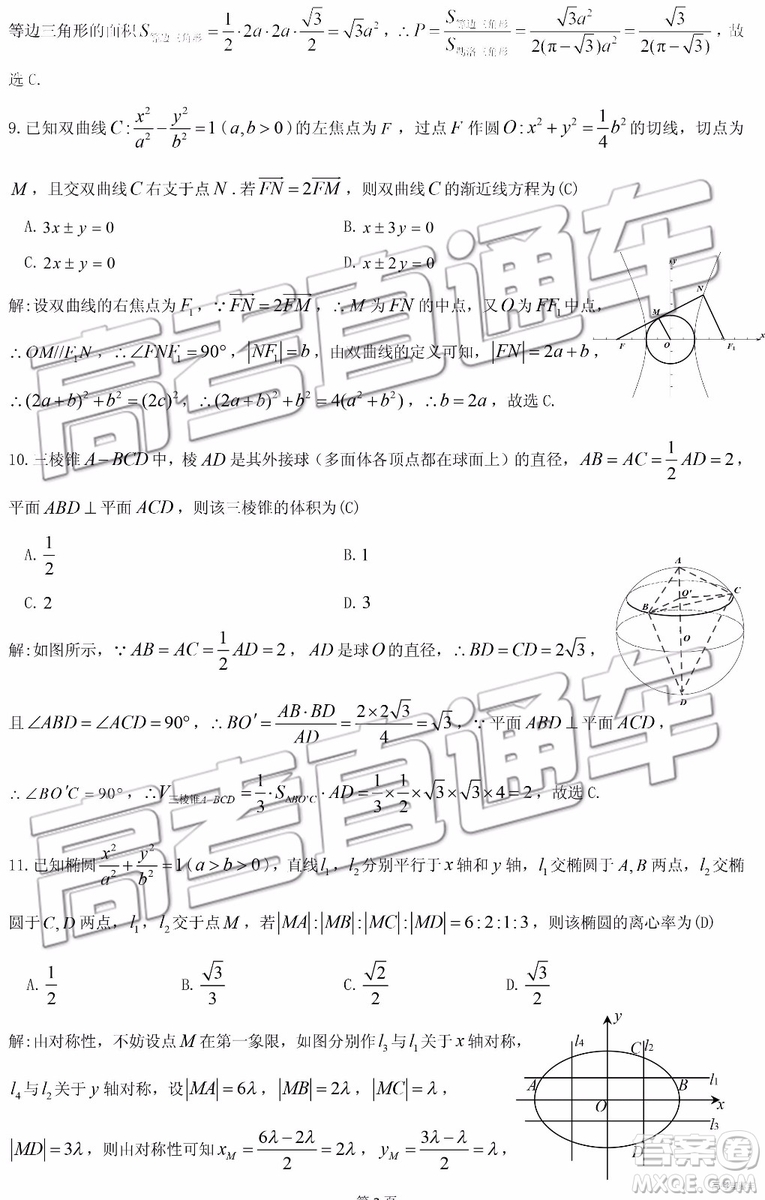 等边三角形的面积 S_{等边三角形} = \frac{1}{2}·2a·2a·\frac{√3}{2} = √3a², ∴P = \frac{S_{等边三角形}}{S_{勒洛三角形}} = \frac{√3a²}{2(π-√3)a²} = \frac{√3}{2(π-√3)}, 故
选C.
9.已知双曲线 C: \frac{x²}{a²} - \frac{y²}{b²} = 1 (a,b>0)的左焦点为 F , 过点 F 作圆 O: x² + y² = \frac{1}{4}b² 的切线, 切点为
M , 且交双曲线 C 右支于点 N .若 \overrightarrow{FN} = 2\overrightarrow{FM} , 则双曲线 C 的渐近线方程为(C)
A. 3x ± y = 0 B. x ± 3y = 0
C. 2x ± y = 0 D. x ± 2y = 0
解:设双曲线的右焦点为 F₁, ∵\overrightarrow{FN} = 2\overrightarrow{FM}, ∴M 为 FN 的中点, 又 O 为 FF₁ 中点,
∴OM//F₁N, ∴∠FNF₁ = 90°, |NF₁| = b, 由双曲线的定义可知, |FN| = 2a + b,
∴(2a+b)² + b² = (2c)², ∴(2a+b)² + b² = 4(a² + b²), ∴b = 2a, 故选 C.
M N F O F₁ x
10.三棱锥 A-BCD 中, 棱 AD 是其外接球(多面体各顶点都在球面上)的直径, AB = AC = \frac{1}{2}AD = 2,
平面 ABD ⊥ 平面 ACD, 则该三棱锥的体积为(C)
A. \frac{1}{2} B. 1
C. 2 D. 3
A O' C B O D
解:如图所示, ∵AB = AC = \frac{1}{2}AD = 2, AD 是球 O 的直径, ∴BD = CD = 2√3,
且 ∠ABD = ∠ACD = 90°, ∴BO' = \frac{AB·BD}{AD} = \frac{2×2√3}{4} = √3, ∵平面 ABD ⊥ 平面 ACD,
∴∠BO'C = 90°, ∴V_{三棱锥A-BCD} = \frac{1}{3}·S_{△BO'C}·AD = \frac{1}{3}×\frac{1}{2}×√3×√3×4 = 2, 故选 C.
11.已知椭圆 \frac{x²}{a²} + \frac{y²}{b²} = 1 (a>b>0), 直线 l₁, l₂ 分别平行于 x 轴和 y 轴, l₁ 交椭圆于 A,B 两点, l₂ 交椭
圆于 C,D 两点, l₁, l₂ 交于点 M, 若 |MA|:|MB|:|MC|:|MD| = 6:2:1:3, 则该椭圆的离心率为(D)
A. \frac{1}{2} B. \frac{√3}{3} C. \frac{√2}{2} D. \frac{√3}{2}
解:由对称性, 不妨设点 M 在第一象限, 如图分别作 l₃ 与 l₁ 关于 x 轴对称,
l₄ 与 l₂ 关于 y 轴对称, 设 |MA| = 6λ, |MB| = 2λ, |MC| = λ,
|MD| = 3λ, 则由对称性可知 x_M = \frac{6λ-2λ}{2} = 2λ, y_M = \frac{3λ-λ}{2} = λ,
y l₄ C l₂ A B l₁ O x l₃ D
高考直通车
高考直通车
答案圈
MXQE.COM